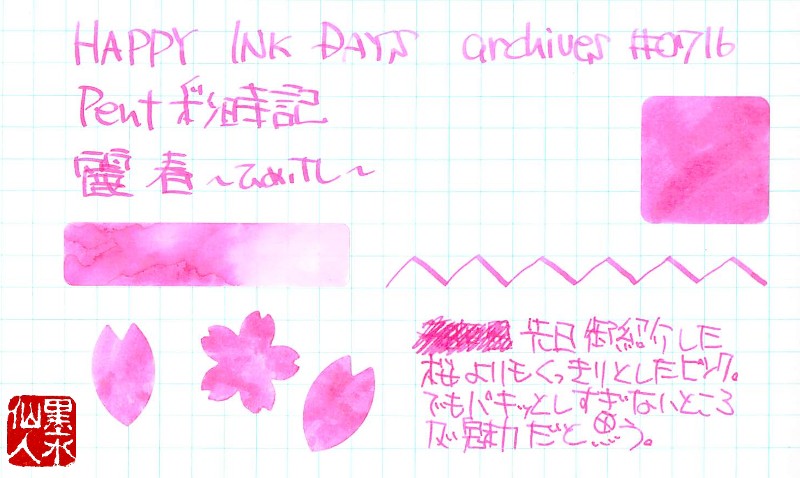 HAPPY INK DAYS archives #0716
Pent 彩時記
霞春
先日御紹介した
桜よりもくっきりとしたピンク。
でもパキッとしすぎないところ
が魅力だと思う。
墨水
仙人